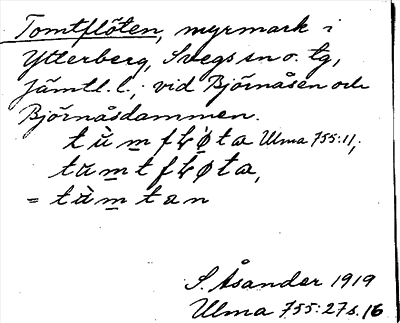 Tomtflöten, myrmark i
Ytterberg, Svegs sn o. tg,
Jämtl. l., vid Björnåsen och
Björnåsdammen.
tùmfłøta Ulma 755:11,
tamtfłøta,
= tàmtan
S. Åsander 1919
Ulma 755:27 s. 16